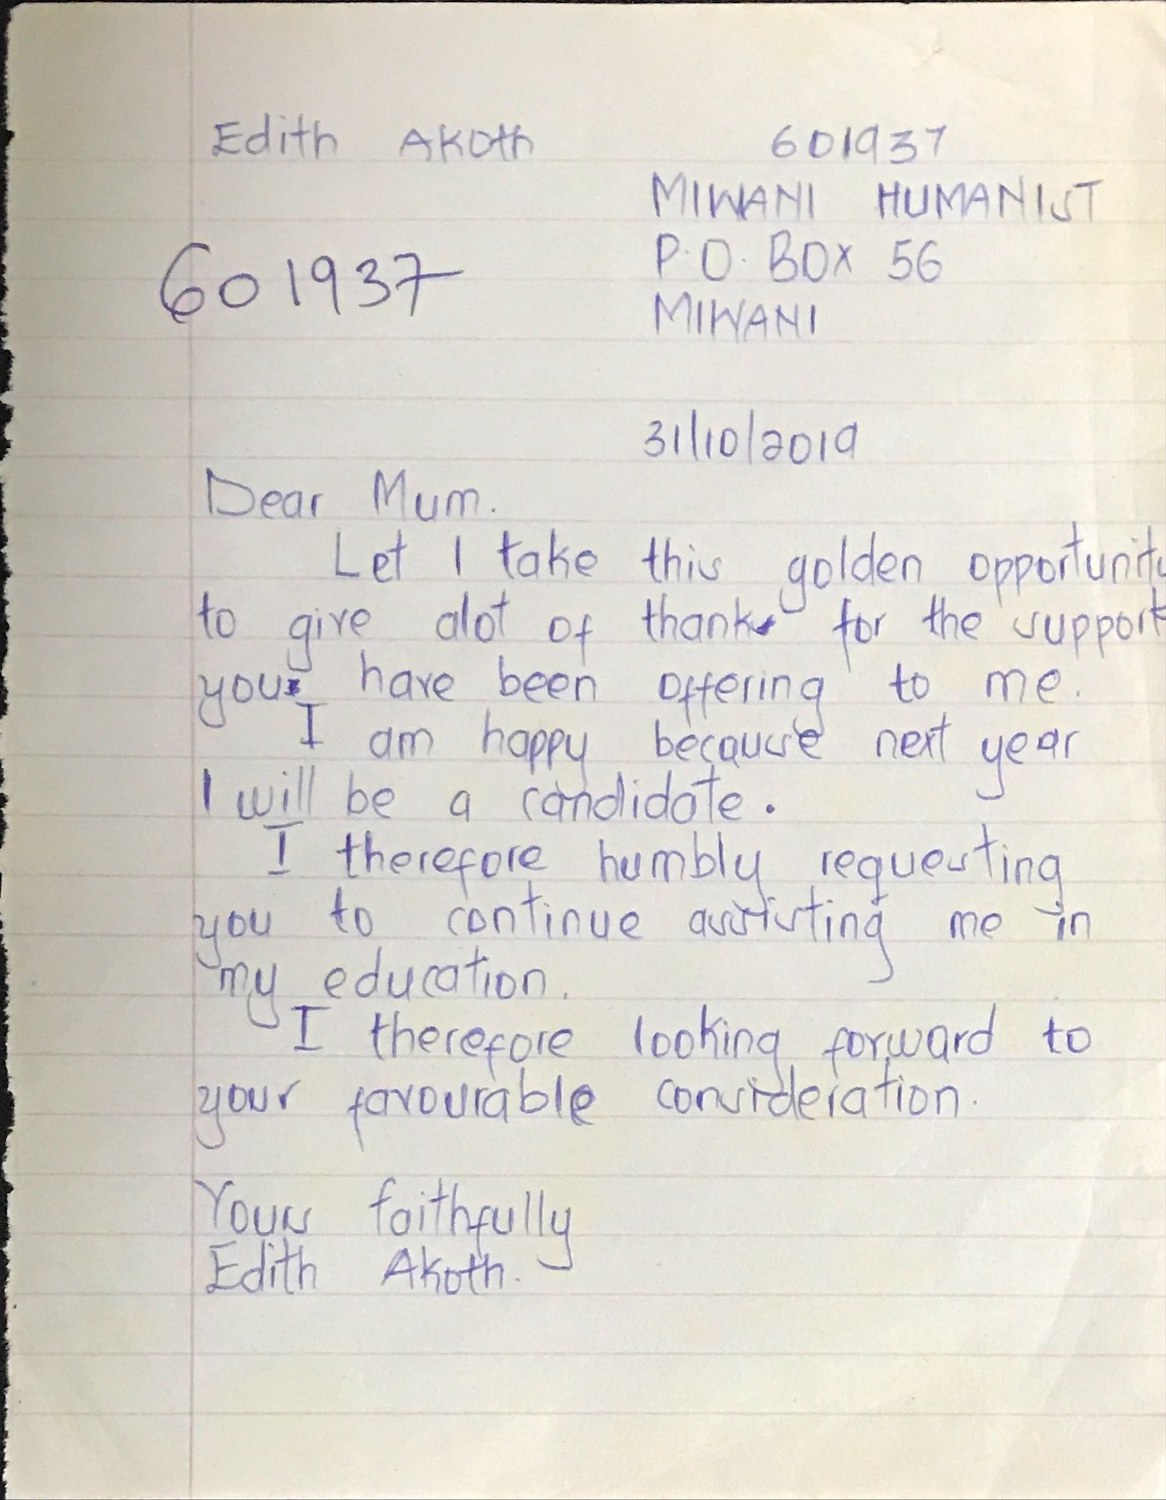 Edith Akoth 601937
MIWANI HUMANIST
P.O. BOX 56
601937
MIWANI
31/10/2019
Dear Mum.
Let I take this golden opportunity
to give alot of thanks for the support
you have been offering to me.
I am happy because next year
I will be a candidate.
I therefore humbly requesting
you to continue assisting me in
my education.
I therefore looking forward to
your favourable consideration.
Yours faithfully
Edith Akoth.